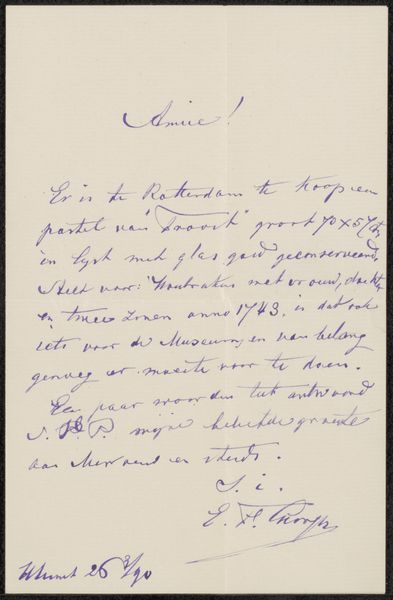 Amice!
Er is te Rotterdam te koop een
pastel van "Troost" groot 70 x 57
in lijst met glas goed geconserveerd.
Stelt voor: Houbraken met vrouw, dochter
en twee zonen anno 1743. is dat ook
iets voor de Museum, en van belang
genoeg er moeite voor te doen.
Een paar woorden tot antwoord
mijne beleefde groete
aan Mevrouw en steeds.
t. i.
E. F.
Utrecht 26 3/90